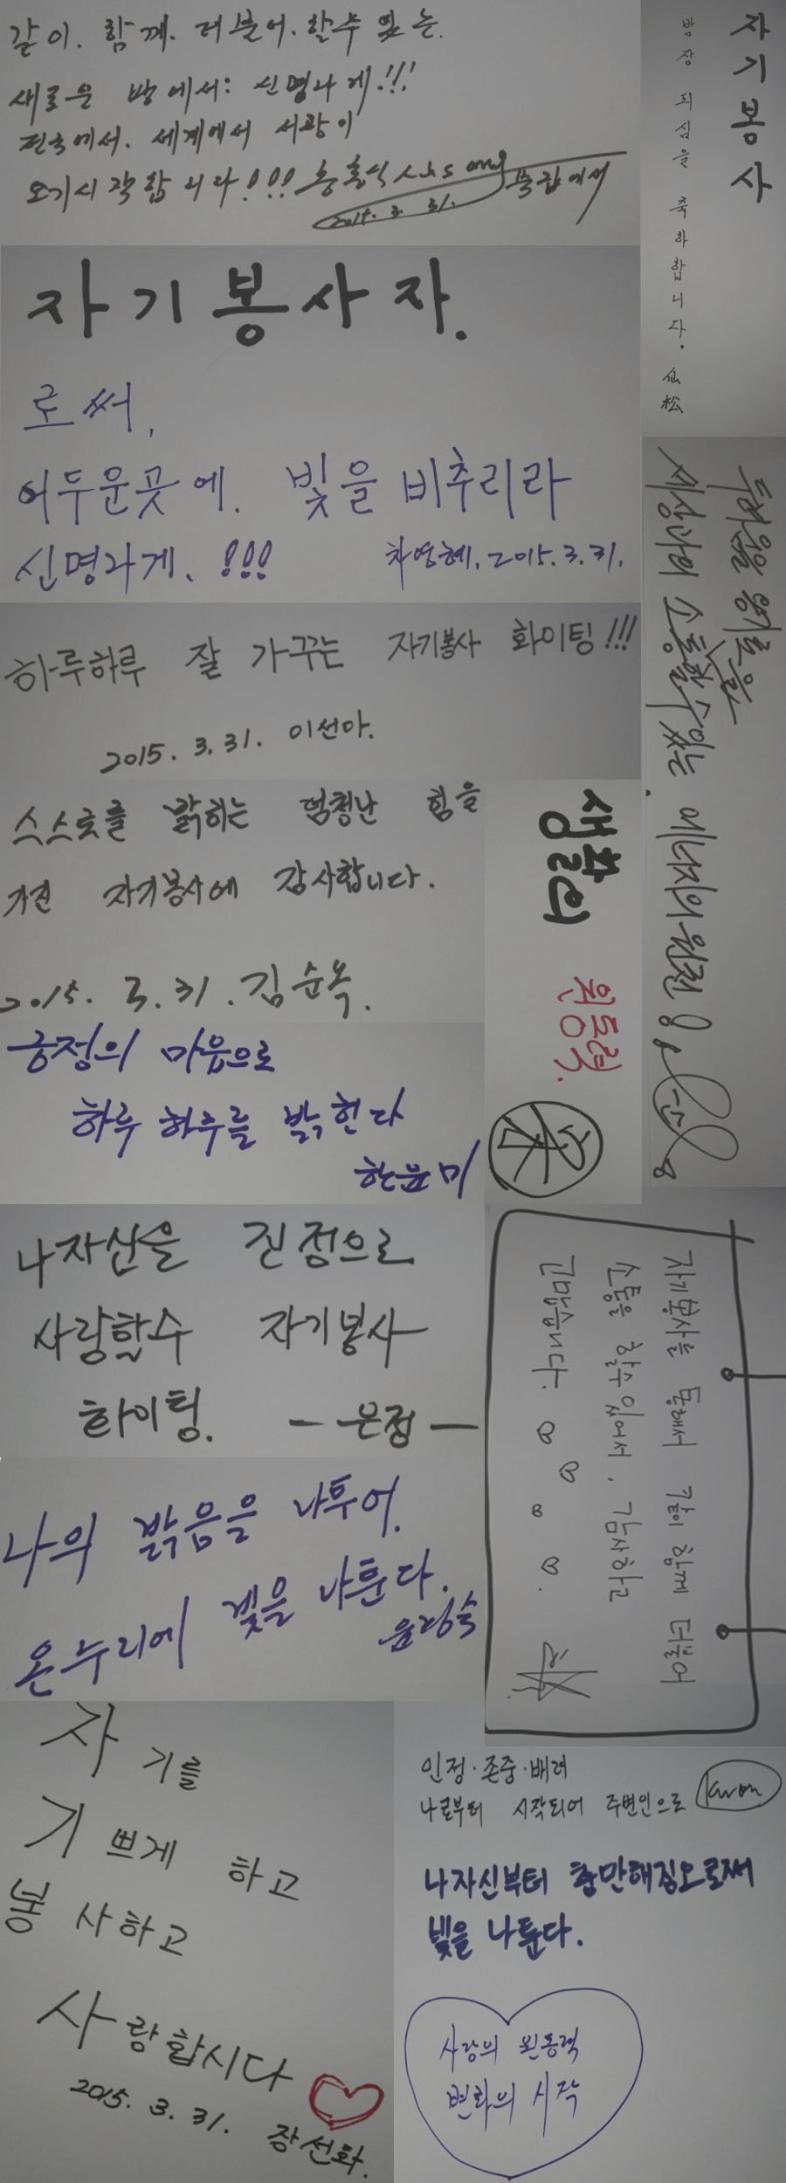 같이. 함께. 더불어. 할수 있는.
새로운 방에서: 신명나게.!!!
전국에서. 세계에서 서광이
오기시작합니다!!!
2015. 3. 31.
자기봉사
방장 되심을 축하합니다. 仙松
자기봉사자.
로써,
어두운곳에. 빛을 비추리라
신명나게. !!!
차영혜. 2015. 3. 31.
두려움을 용기로
세상과의 소통할수있는. 에너지의원천
하루하루 잘 가꾸는 자기봉사 화이팅!!!
2015. 3. 31. 이선아.
스스로를 밝히는 엄청난 힘을
가진 자기봉사에 감사합니다.
2015. 3. 31. 김순옥.
생활의
원동력.
긍정의 마음으로
하루 하루를 밝힌다
한윤미
나자신을 진정으로
사랑할수 자기봉사
화이팅. - 은점 -
자기봉사를 통해서 같이 함께 더불어
소통을 할수있어서, 감사하고
고맙습니다.
나의 밝음을 나투어.
온누리에 빛을 나툰다.
자기를
기쁘게 하고
봉사하고
사랑합시다
2015. 3. 31. 장선화.
인정·존중·배려
나로부터 시작되어 주변인으로 Kwon
나자신부터 충만해짐으로써
빛을 나툰다.
사랑의 원동력
변화의 시작